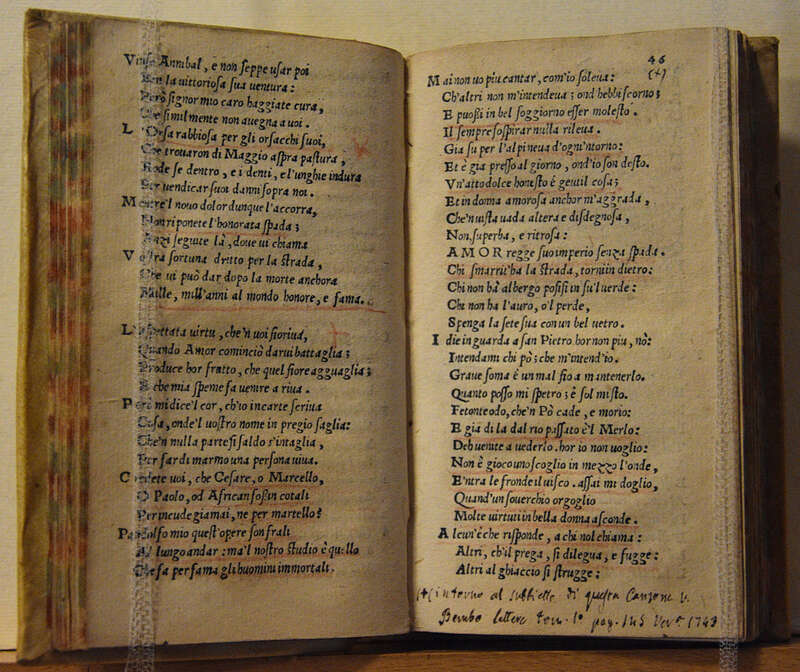 Vinse Annibal, e non seppe usar poi
Ben la uittoriosa sua uentura:
Però signor mio caro haggiate cura,
Che similmente non auegna a uoi.
L'Orsa rabbiosa per gli orsacchi suoi,
Che trouaron di Maggio aspra pastura,
Rode se dentro, e i denti, e l'unghie indura
Per uendicar suoi danni sopra noi.
Mentre'l nouo dolor dunque l'accorra,
Non riponete l'honorata spada;
Anzi seguite là, doue ui chiama
Vostra fortuna dritto per la strada,
Che ui può dar dopo la morte anchora
Mille, mill'anni al mondo honore, e fama.
L'aspettata uirtu, che'n uoi fioriua,
Quando Amor cominciò darui battaglia;
Produce hor frutto, che quel fiore agguaglia;
E che mia speme fa uenire a riua.
Però mi dice'l cor, ch'io in carte scriua
Cosa, onde'l uostro nome in pregio saglia:
Che'n nulla parte si saldo s'intaglia,
Per far di marmo una persona uiua.
Credete uoi, che Cesare, o Marcello,
O Paolo, od African fossin cotali
Per incude giamai, ne per martello?
Pandolfo mio quest'opere son frali
Al lungo andar: ma'l nostro studio è quello
Che fa per fama gli huomini immortali.
46
(+)
Mai non uo piu cantar, com'io soleua:
Ch'altri non m'intendeua; ond'hebbi scorno;
E puossi in bel soggiorno esser molesto.
Il sempre sospirar nulla rileua.
Gia su per l'alpi neua d'ogn'intorno:
Et è gia presso al giorno, ond'io son desto.
Vn'atto dolce honesto è gentil cosa;
Et in donna amorosa anchor m'aggrada,
Che'n uista uada altera e disdegnosa,
Non superba, e ritrosa:
AMOR regge suo imperio senza spada.
Chi smarrit'ha la strada, torni in dietro:
Chi non hà albergo posisi in su'l uerde:
Chi non ha l'auro, o'l perde,
Spenga la sete sua con un bel uetro.
I die in guarda a san Pietro hor non piu, nò:
Intendami chi pò; che m'intend'io.
Graue soma è un mal fio a mantenerlo.
Quanto posso mi spetro; è sol mi sto.
Fetonte odo, che'n Pò cade, e morio:
E gia di la dal rio passato è'l Merlo:
Deh uenite a uederlo. hor io non uoglio:
Non è gioco uno scoglio in mezzo l'onde,
E'ntra le fronde il uisco. assai mi doglio,
Quand'un souerchio orgoglio
Molte uirtuti in bella donna asconde.
Alcun'è che risponde, a chi nol chiama:
Altri, ch'il prega, si dilegua, e fugge:
Altri al ghiaccio si strugge:
(+) intorno al subbietto di questa Canzone v.
Bembo lettere tom. 1º pag. 145 Ver.ª 1743